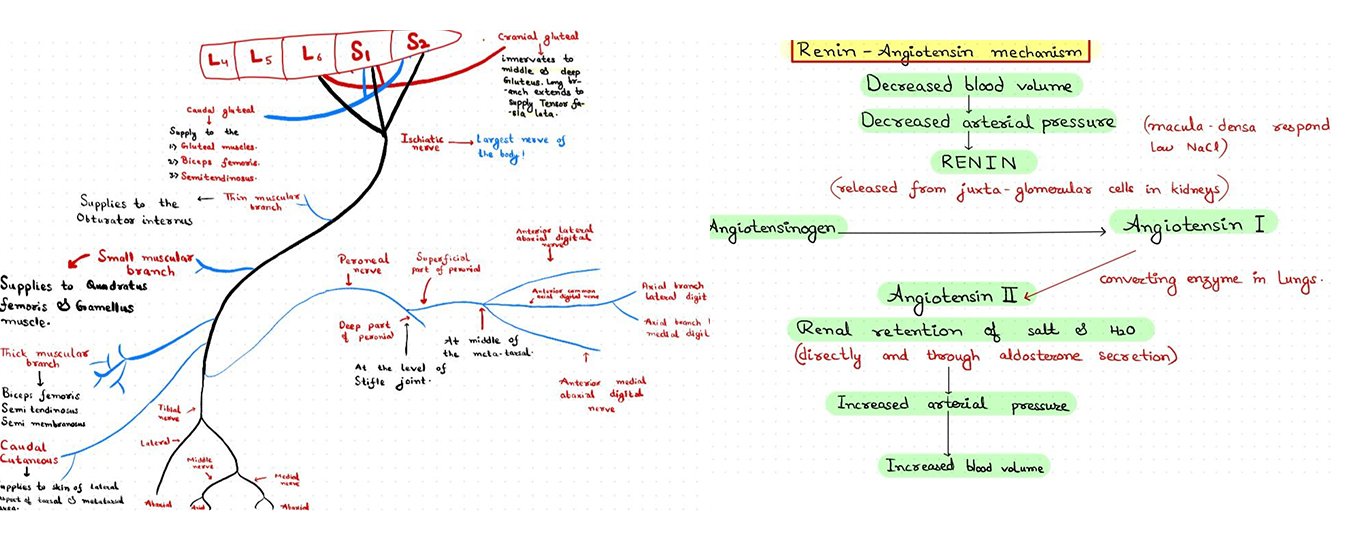 L4 L5 L6 S1 S2
Cranial gluteal
innervates to
middle & deep
Gluteus. Long br-
-anch extends to
supply Tensor fa-
-sia lata.
Caudal gluteal
Supply to the
1) Gluteal muscles.
2) Biceps femoris.
3) Semitendinosus.
Ischiatic
nerve
Largest nerve of
the body!
Thin muscular
branch
Supplies to the
Obturator internus
Small muscular
branch
Supplies to Quadratus
femoris & Gamellus
muscle.
Thick muscular
branch
Biceps femoris
Semi tendinosus
Semi membranosus
Caudal
Cutaneous
applies to skin of lateral
aspect of tarsal & metatarsal
area.
Peroneal
nerve
Superficial
part of peronial
Deep part
of peronial
At the level of
Stifle joint.
At middle of
the meta-tarsal.
Anterior lateral
abaxial digital
nerve
Anterior common
axial digital nerve
Axial branch
lateral digit
Axial branch
medial digit
Anterior medial
abaxial digital
nerve
Tibial
nerve
Lateral
Middle
nerve
Medial
nerve
Abaxial
Axial
Abaxial
Renin - Angiotensin mechanism
Decreased blood volume
Decreased arterial pressure
(macula-densa respond
low NaCl)
RENIN
(released from juxta-glomerular cells in kidneys)
Angiotensinogen
Angiotensin I
converting enzyme in Lungs.
Angiotensin II
Renal retention of salt & H2O
(directly and through aldosterone secretion)
Increased arterial pressure
Increased blood volume